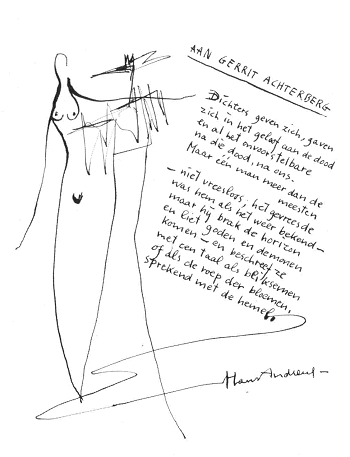 AAN GERRIT ACHTERBERG
Dichters geven zich, gaven
zich in het geloof aan de dood
en al het onvoorstelbare
na die dood, na ons.
Maar één man meer dan de
meesten
– niet vreesloos; het gevreesde
was hem als het weer bekend –
maar hij brak de horizon
en liet goden en demonen
komen – en beschreef ze
met een taal als bliksemen
of als de roep der bloemen,
sprekend met de hemel.
Hans Andreus –